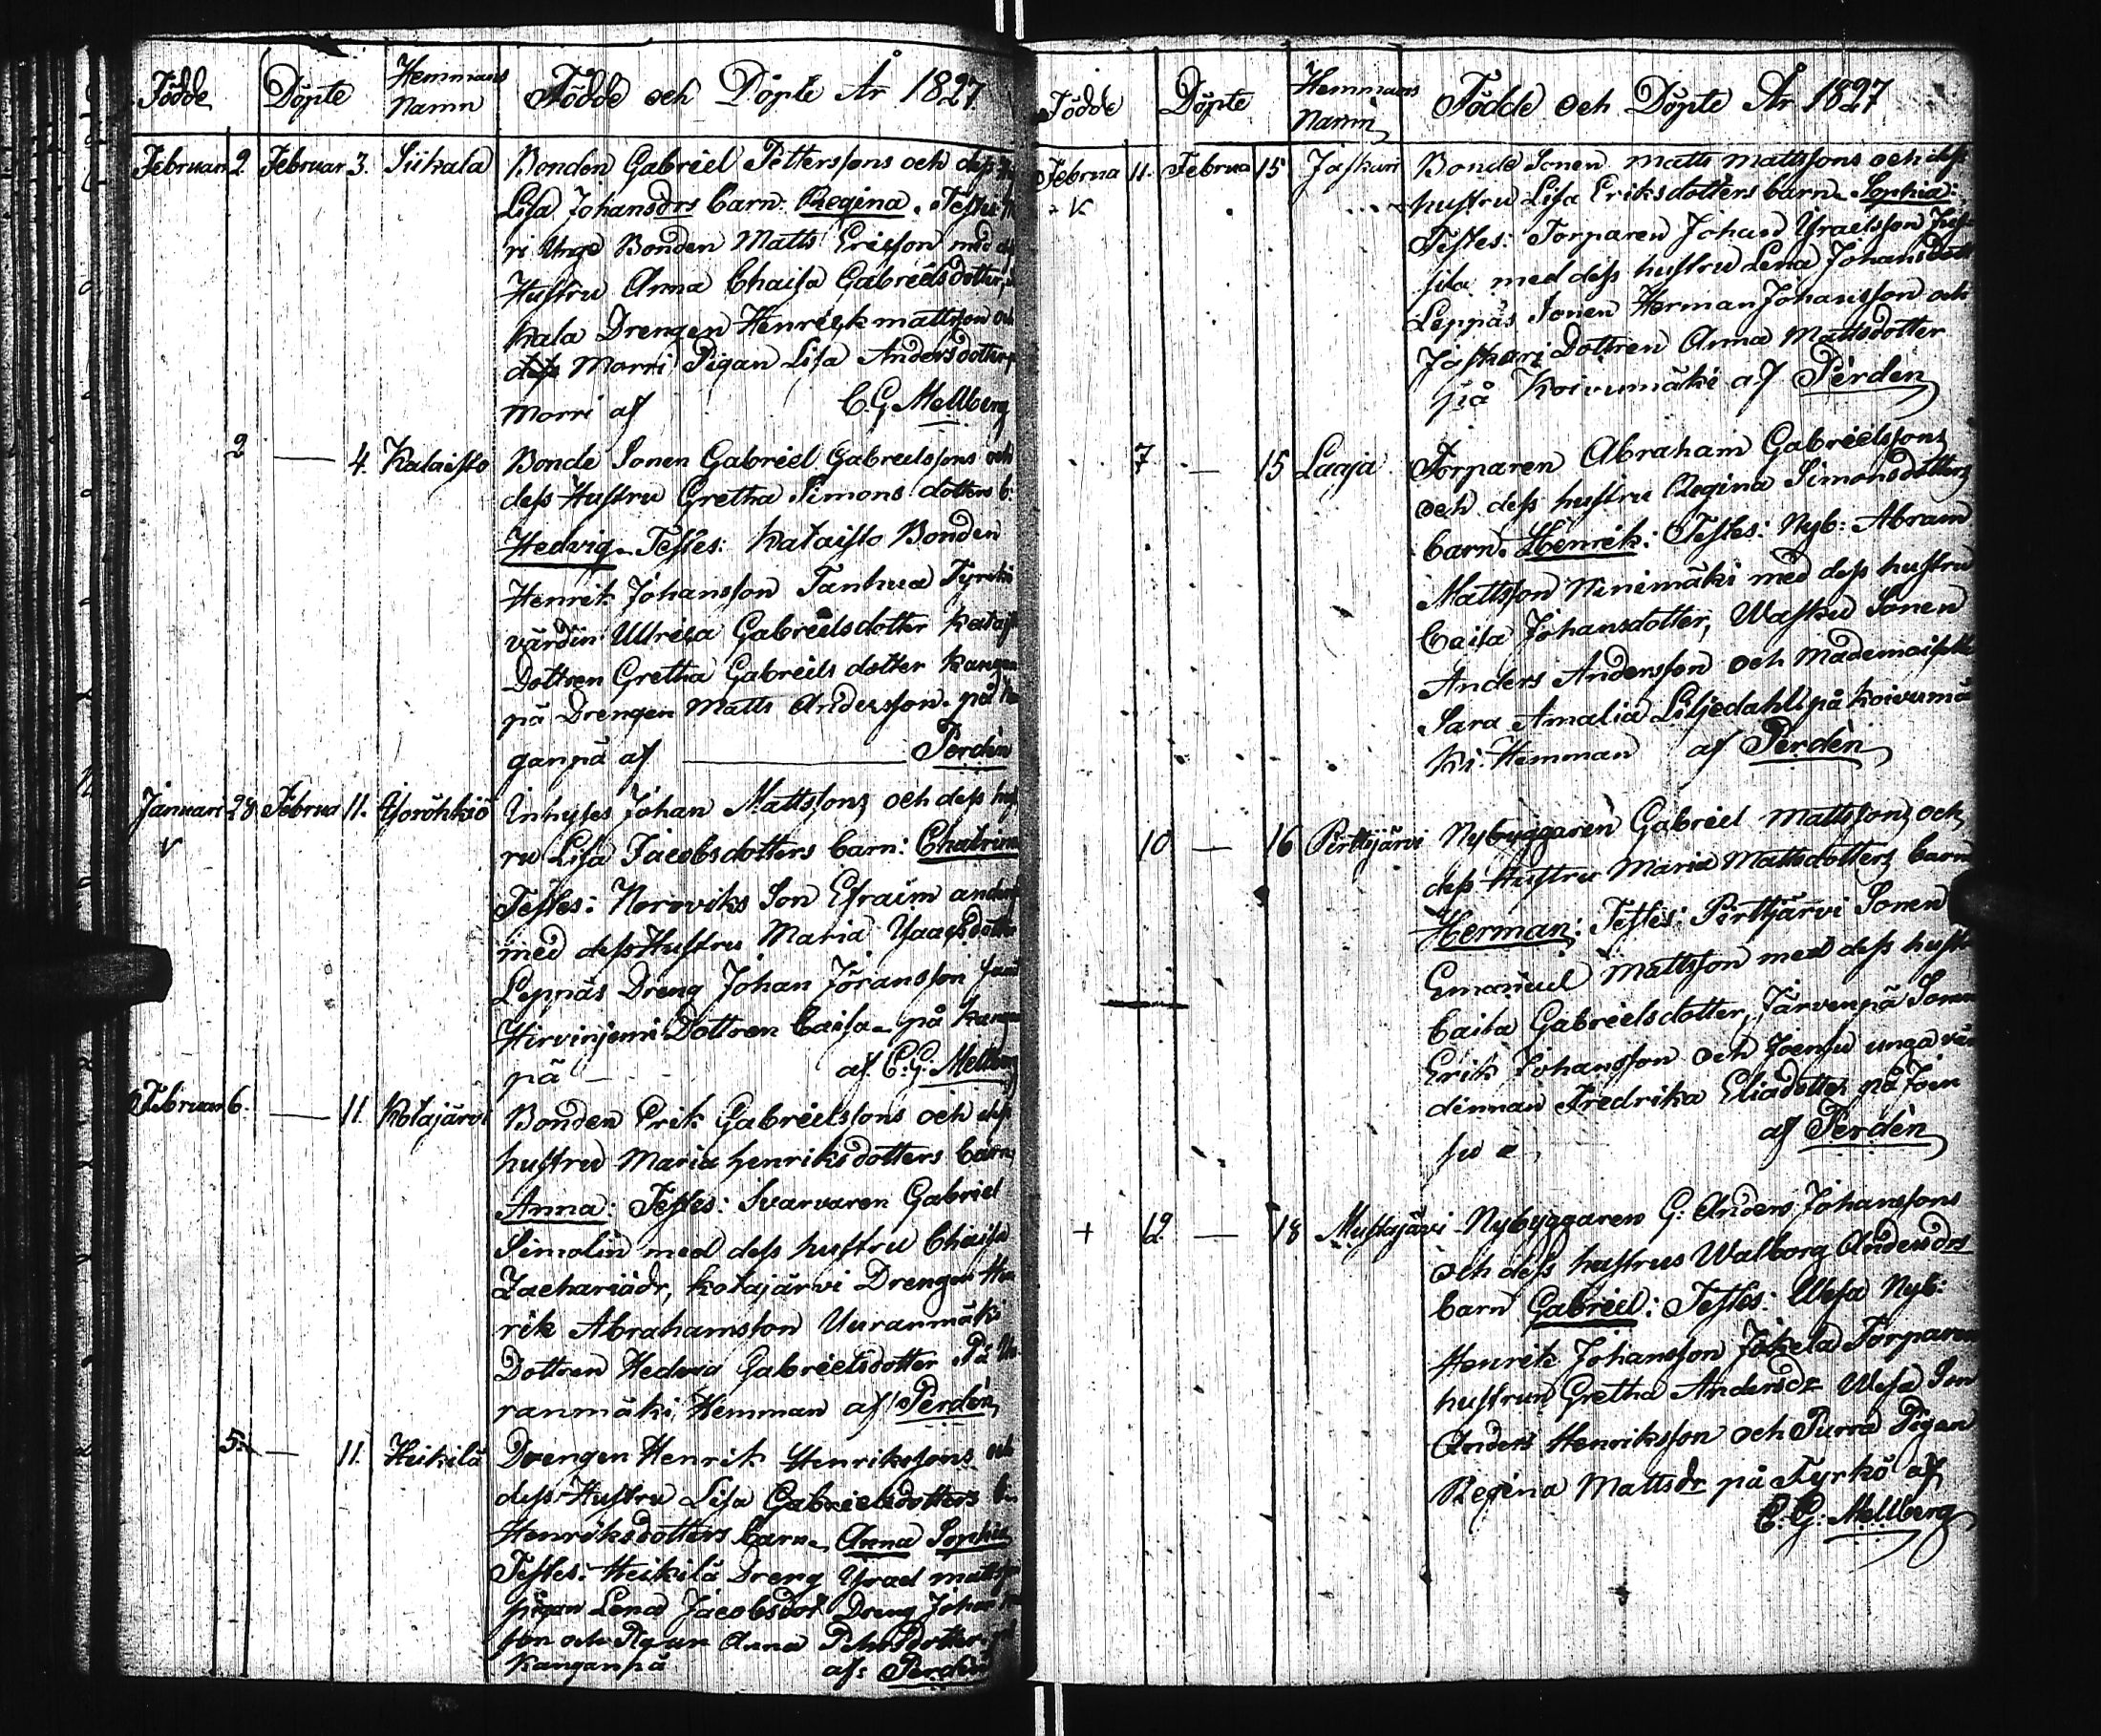 Födde
Döpte
Hemmans
Namn
Födde och Döpte År 1827
Februari 2. Februar 3. Siikala Bonden Gabriel Petterssons och dess
Lisa Johansdrs barn: Regina. Testes
ri Unge Bonden Matts Ericsson med
Hustru Anna Chaisa Gabrielsdotter,
kala Drengen Henrick mattsson och
dess Morri Pigan Lisa Andersdotter
Morri af C. G. Mellberg
2 — 4. Kataisto Bonde Sonen Gabriel Gabrielssons och
dess Hustru Gretha Simons dotters b:
Hedvig. Testes: Kataisto Bonden
Henrik Johansson Tanhua Tyrkö
värdin Ulrica Gabrielsdotter
Dottren Gretha Gabriels dotter Kangan
pä Drengen Matts Andersson. på
ganpä af — Perdén
Januari 28 Februa 11. Inhyses Johan Mattssons och dess
ru Lisa Jacobsdotters barn: Chatrina
Testes: Norrviks Son Efraim
med dess Hustru Maria
Leppäs Dreng Johan Jöransson
Hirviniemi Dottren Caisa på
pä — af. C. G. Mellberg
Februari 6. — 11. Kotajärvi Bonden Erik Gabrielssons och dess
hustru Maria henriksdotters barn
Anna: Testes: Svarvaren Gabriel
Simolin med dess hustru Chaisa
Zachariädr, Kotajärvi Drengen Hen
rik Abrahamsson Uuranmäki
Dottren Hedvig Gabrielsdotter På Uu
ranmäki Hemman af Perdén
5. — 11. Heikilä Drengen Henrik Henrikssons och
dess Hustru Lisa Gabrielsdotters
Henriksdotters barn. Anna Sophia
Testes: Heikilä Dreng Ysrael
pigan Lena Jacobsdot Dreng Johan
son och Pigan Anna
Kanganpä af: Perdén
Födde
Döpte
Hemmans
Namn
Födde och Döpte År 1827
Februa 11. Februa 15 Jaskari Bonde Sonen matts mattssons och dess
hustru Lisa Eriksdotters barn Sophia:
Testes: Torparen Johan Ysraelsson
sila med dess hustru Lena Johansdott
Leppäs Sonen Herman Johansson och
Jaskari Dottren Anna Mattsdotter
på Koivumäki af Perdén
7 — 15 Laaja Torparen Abraham Gabrielssons
och dess hustru Regina Simonsdotters
barn. Henrik: Testes: Nyb: Abram
Mattsson Ninimäki med dess hustru
Caisa Johansdotter, Wasku Sonen
Anders Andersson och Mademoiselle
Sara Amalia Liljedahl på Koivumä
ki Hemman af Perdén
10 — 16 Pirttijärvi Nybyggaren Gabriel Mattssons och
dess Hustru Maria Mattsdotters barn
Herman: Testes: Pirttjärvi Sonen
Emanuel Mattsson med dess hust
Caisa Gabrielsdotter, Järvenpä Sonen
Erik Johansson och Joensu unga vär
dinnan Fredrika Eliadotter på Joen
su af Perdén
+ 12 — 18 Mustajärvi Nybyggaren G: Anders Johanssons
och dess hustrus Walborg Andersdrs
barn Gabriel: Testes: Wesa Nyb:
Henrik Johansson Jokela Torparen
hustrun Gretha Andersdr Wesa Son
Anders Henriksson och Purra Pigan
Regina Mattsdr på Tyrkö af
C. G: Mellberg